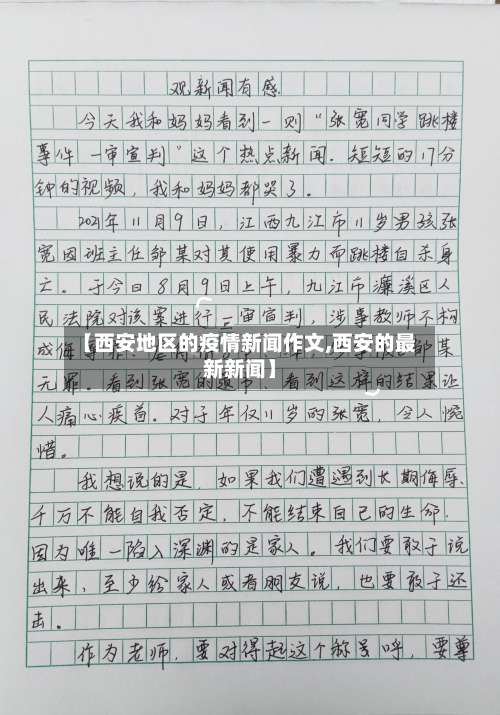 观新闻有感
今天我和妈妈看到一则“张宽同学跳楼
事件一审宣判”这个热点新闻。短短的17分
钟的视频，我和妈妈都哭了。
2021年11月9日，江西九江市11岁男孩张
宽因班主任邹某对其使用暴力而跳楼自杀身
亡。于今日8月9日上午，九江市濂溪区人
民法院对该案进行一审宣判，涉事教师不构
【西安地区的疫情新闻作文,西安的最
新新闻】
成侮辱
邹某
无罪。看到张宽的遗书，看到这样的结果让
人痛心疾首。对于年仅11岁的张宽，令人惋
惜。
我想说的是，如果我们遭遇到长期侮辱、
千万不能自我否定，不能结束自己的生命，
因为唯一陷入深渊的是家人。我们要敢于说
出来，至少给家人或者朋友说，也要敢于还
击。
作为老师，要对得起这个称号呼，要尊